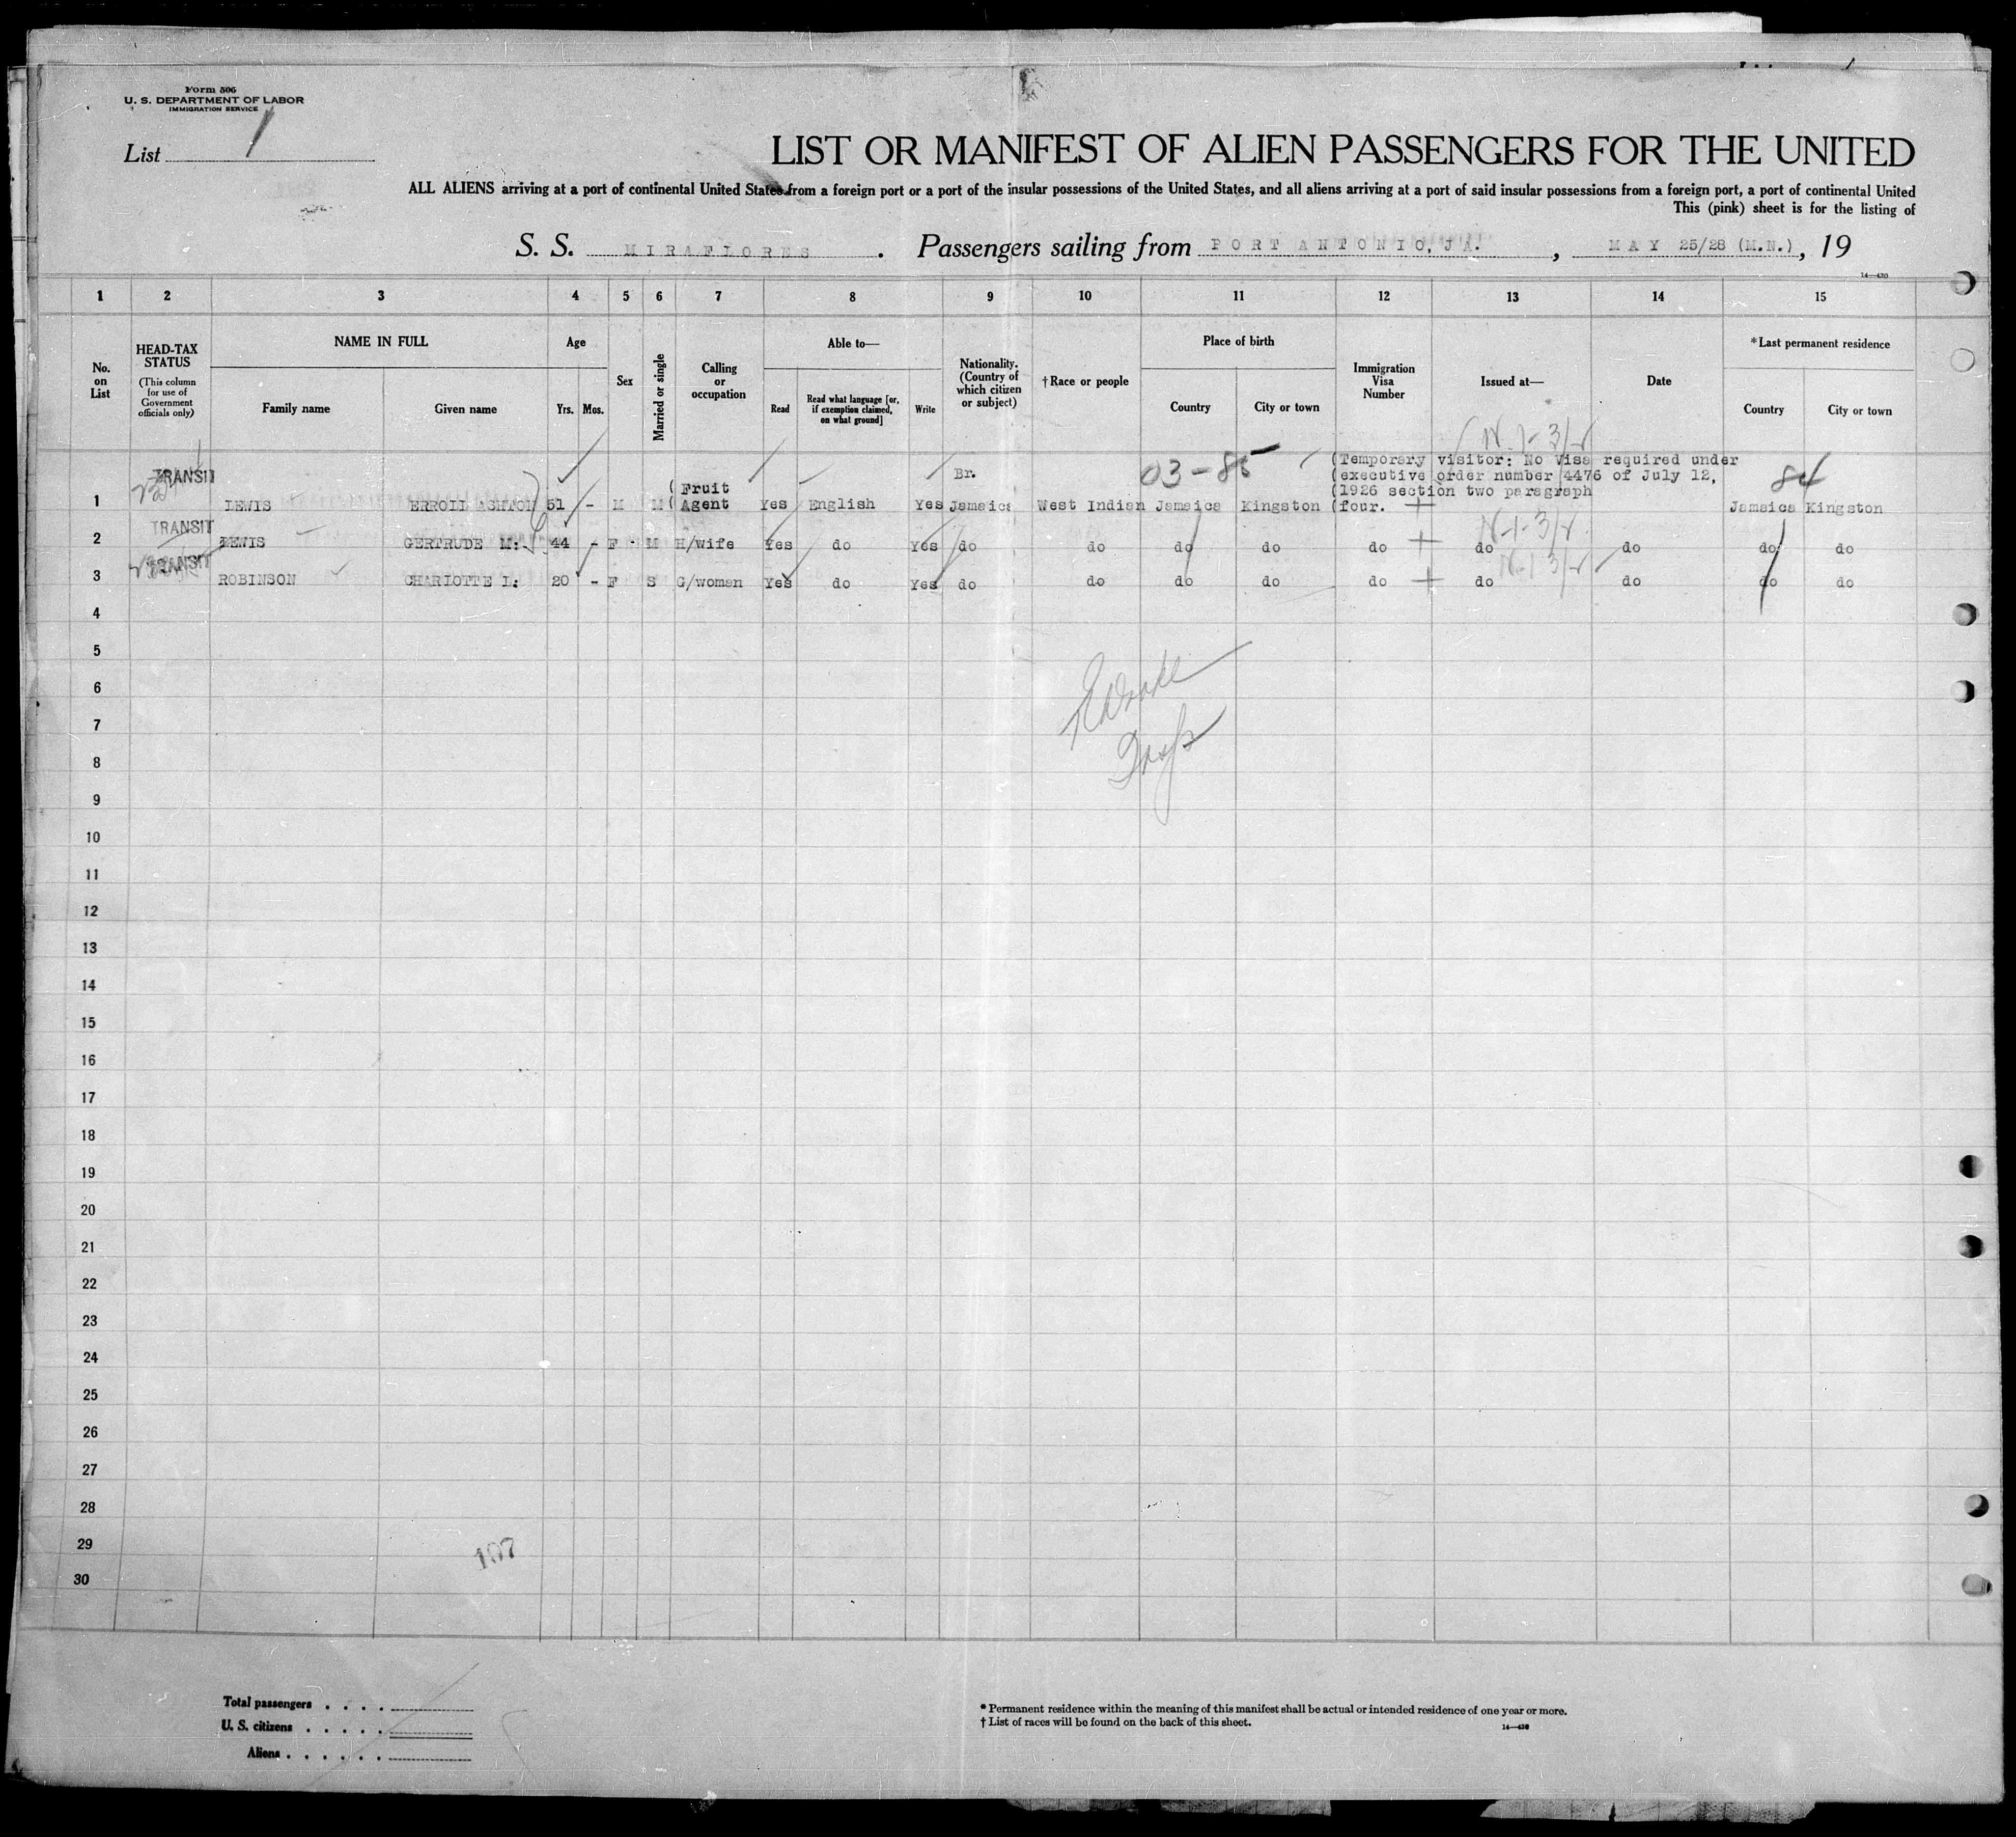 Form 506
U. S. DEPARTMENT OF LABOR
IMMIGRATION SERVICE
List 1
LIST OR MANIFEST OF ALIEN PASSENGERS FOR THE UNITED
ALL ALIENS arriving at a port of continental United States from a foreign port or a port of the insular possessions of the United States, and all aliens arriving at a port of said insular possessions from a foreign port, a port of continental United
This (pink) sheet is for the listing of
S. S. MIRAFLORES. Passengers sailing from PORT ANTONIO, JA., MAY 25/28 (M.N.), 19
14—430
1 2 3 4 5 6 7 8 9 10 11 12 13 14 15
No. on List
HEAD-TAX STATUS
(This column for use of Government officials only)
NAME IN FULL
Family name Given name
Age
Yrs. Mos.
Sex
Married or single
Calling or occupation
Able to—
Read
Read what language [or, if exemption claimed, on what ground]
Write
Nationality. (Country of which citizen or subject)
†Race or people
Place of birth
Country City or town
Immigration Visa Number
Issued at—
Date
*Last permanent residence
Country City or town
03-85
84
TRANSIT
(Temporary visitor: No Visa required under
(executive order number 4476 of July 12,
(1926 section two paragraph
1 LEWIS ERROLL ASHTON 51 - M M (Fruit (Agent Yes English Yes Br. Jamaica West Indian Jamaica Kingston (four. Jamaica Kingston
TRANSIT
2 LEWIS GERTRUDE M: 44 - F M H/wife Yes do Yes do do do do do do do do do
TRANSIT
3 ROBINSON CHARLOTTE L: 20 - F S G/woman Yes do Yes do do do do do do do do do
4
5
6
7
8
9
10
11
12
13
14
15
16
17
18
19
20
21
22
23
24
25
26
27
28
29
107
30
Total passengers . . . .
U. S. citizens . . . . .
Aliens . . . . . .
* Permanent residence within the meaning of this manifest shall be actual or intended residence of one year or more.
† List of races will be found on the back of this sheet.
14—430